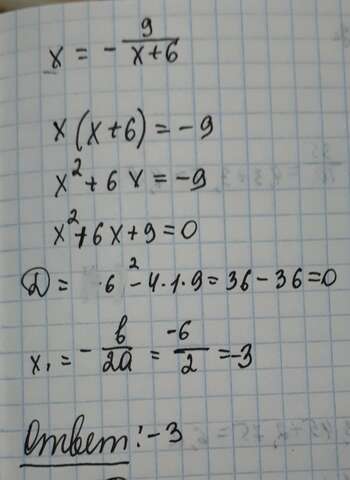 x = - 9/(x+6)
x(x+6) = -9
x² + 6x = -9
x² + 6x + 9 = 0
D = 6² - 4·1·9 = 36 - 36 = 0
x₁ = - b/2a = -6/2 = -3
Ответ: -3